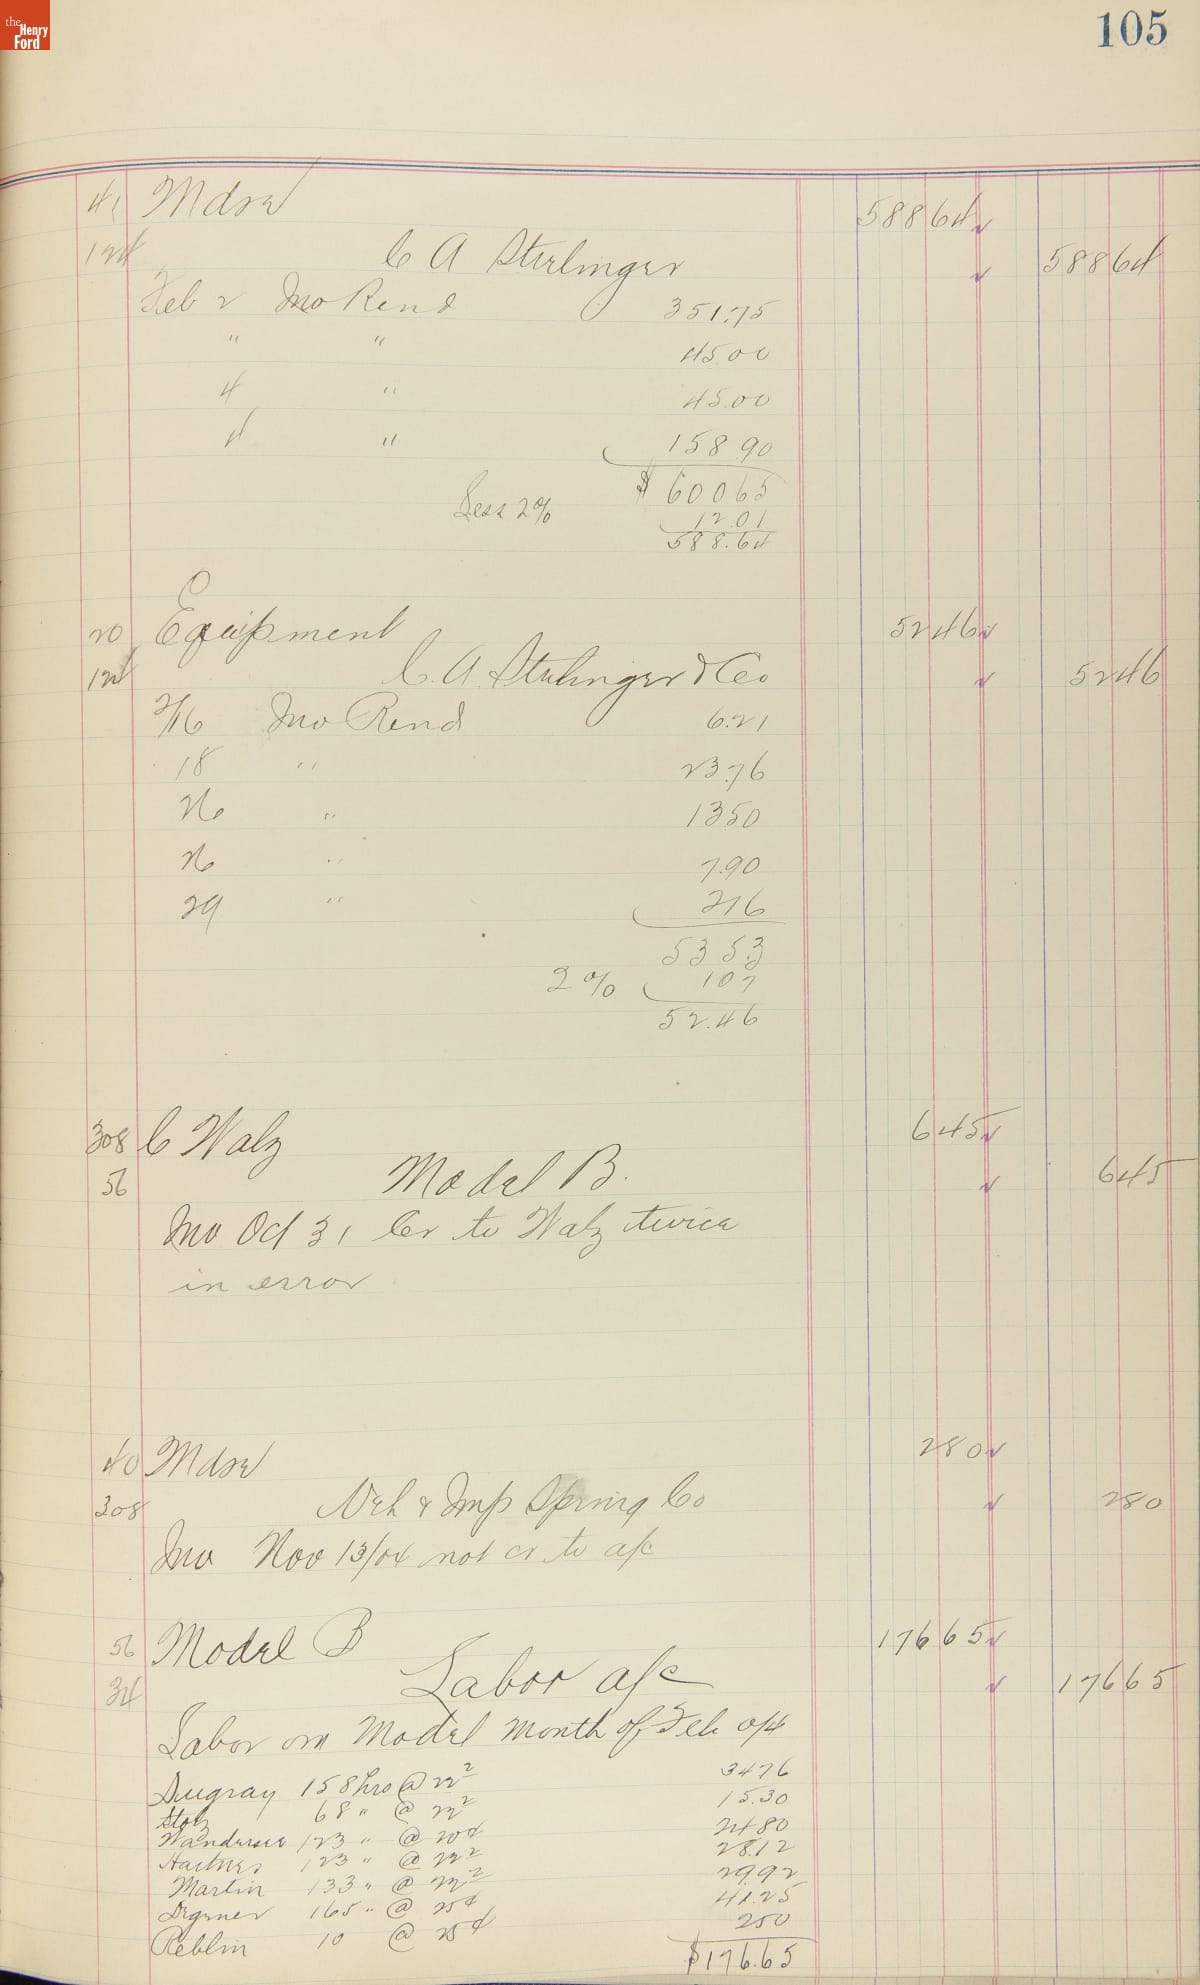 the Henry Ford
105
41 Mdse 588 64
124 C A Sterlinger 588 64
Feb 2 Inv Rend 351.75
" " 45 00
4 " 45.00
4 " 158 90
$ 600 65
Less 2% 12.01
588.64
20 Equipment 52 46
124 C. A. Sterlinger & Co 52 46
2/16 Inv Rend 6.21
18 " 23.76
26 " 13 50
26 " 7.90
29 " 2 16
53 53
2% 1 07
52.46
308 C Walz 6 45
56 Model B. 6 45
Inv Oct 31 Cr to Walz twice
in error
40 Mdse 2 80
308 Veh & Imp Spring Co 2 80
Inv Nov 13/04 not cr to a/c
56 Model B 176 65
34 Labor a/c 176 65
Labor on Model month of Feb 04
Dugray 158 hrs @ 22² 34 76
Stolz 68 " @ 22² 15.30
123 " @ 20¢ 24 80
123 " @ 22² 28.12
Martin 133 " @ 22² 29.92
Degener 165 " @ 25¢ 41.25
Reblin 10 @ 25¢ 2 50
$176.65